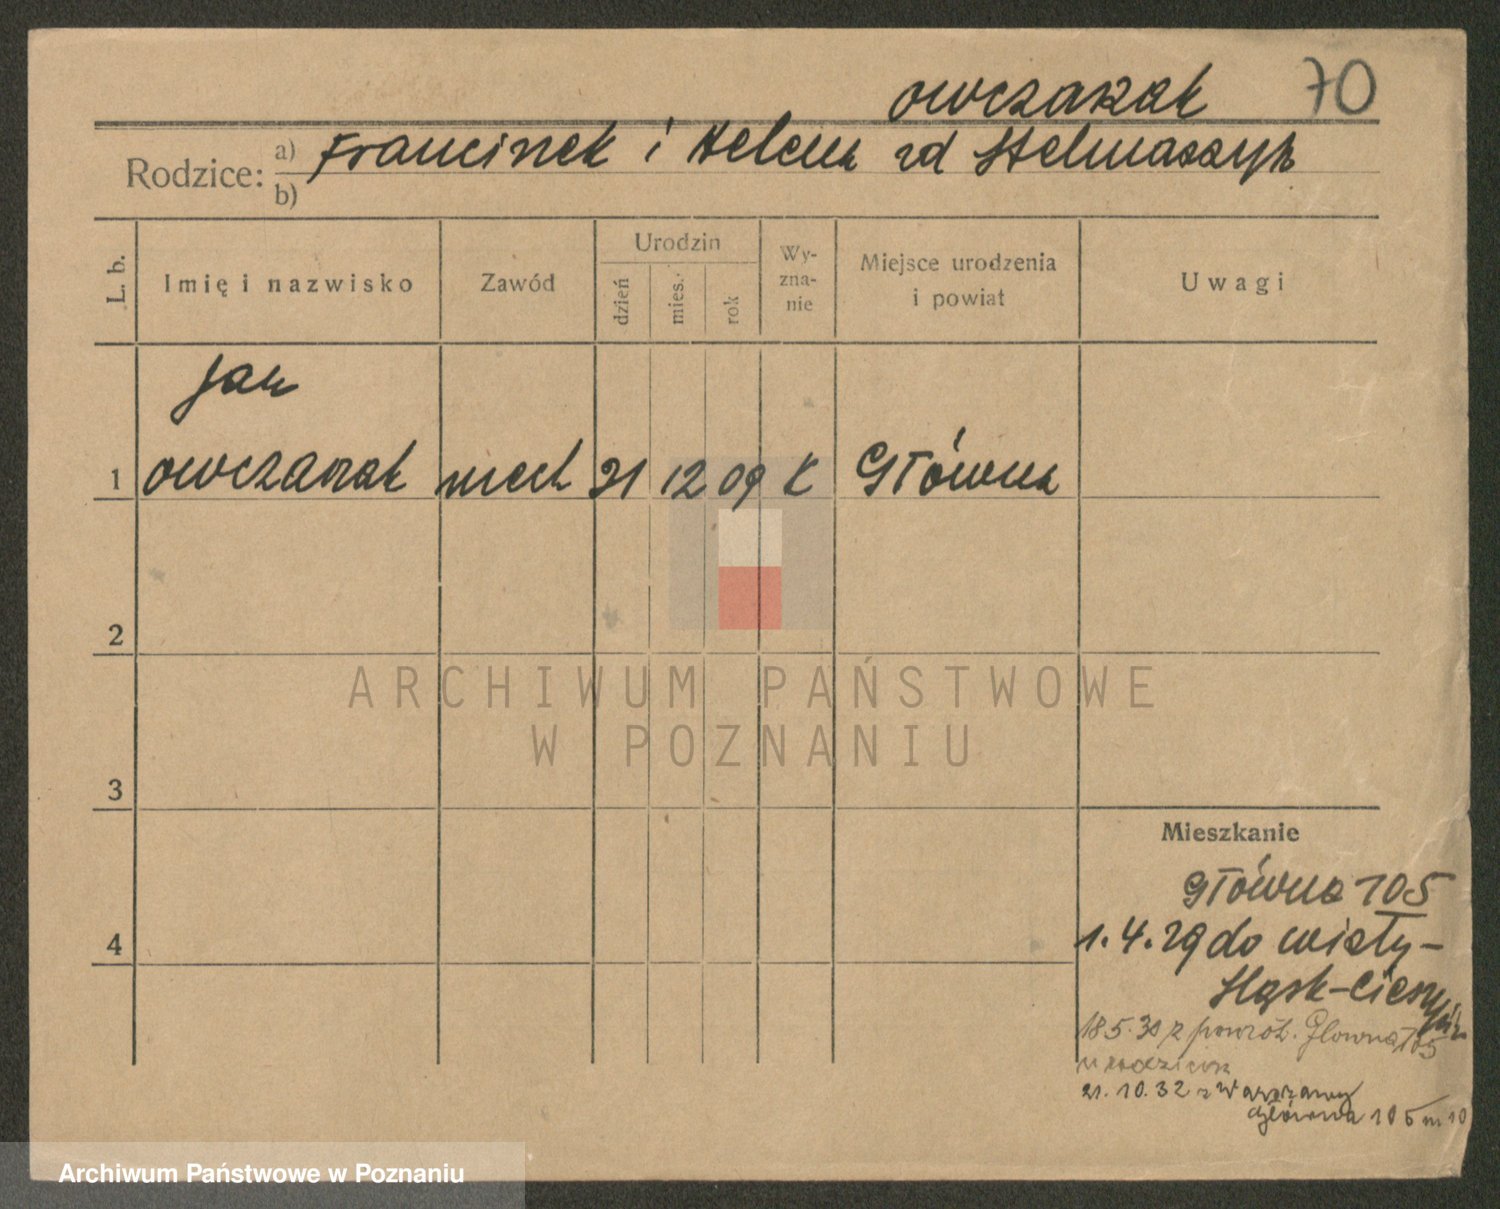 Owczarzak 70
Rodzice: a) Franciszek i Helena zd Stelmaszyk
b)
L. b. Imię i nazwisko Zawód Urodzin dzień mies. rok Wy-zna-nie Miejsce urodzenia i powiat Uwagi
Jan
1 Owczarzak mech 21 12 09 K Główna
2
3
4
Mieszkanie
Główna 105
1.4.29 do Wisły-
Śląsk-Cieszyń.
18.5.30 z powrót. Glowna 105
u rodziców
21.10.32 z Warszawy
Główna 105 m 10
ARCHIWUM PAŃSTWOWE
W POZNANIU
Archiwum Państwowe w Poznaniu